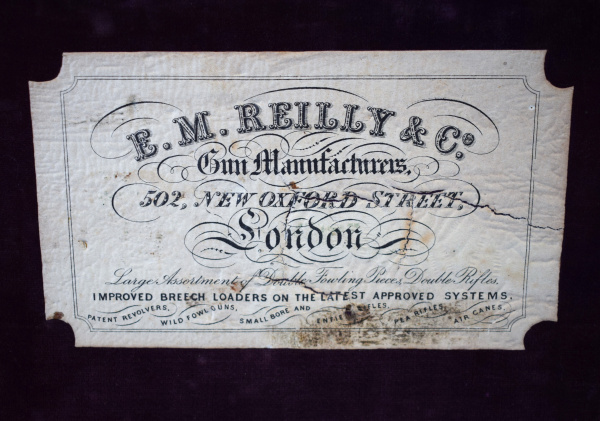 E. M. REILLY & Co.
Gun Manufacturers,
502, NEW OXFORD STREET,
London
Large Assortment of Double Fowling Pieces, Double Rifles,
IMPROVED BREECH LOADERS ON THE LATEST APPROVED SYSTEMS.
PATENT REVOLVERS, WILD FOWL GUNS, SMALL BORE AND RIFLES, PEA RIFLES, AIR CANES.